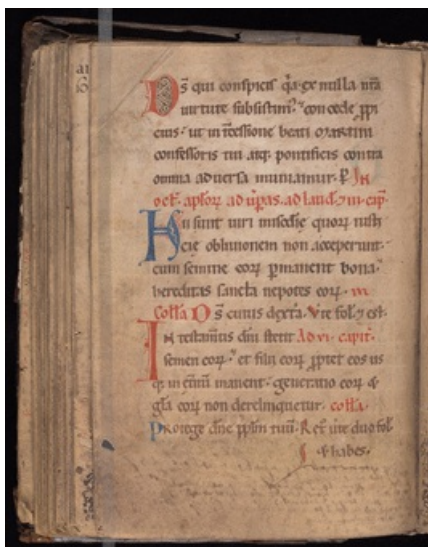 Ds qui conspicis qa ex nulla nra
uirtute subsistim; concede ppi
cius ut int cessione beati Martini
confessoris tui atq; pontificis contra
omnia aduersa muniamur. P In
oct. aplor ad uspas. ad laud. 7 iii. cap.
Hii sunt uiri misedie quor iusti
cie obliuionem non acceperunt.
cum semine eor pmanent bona.
hereditas sancta nepotes eor. iii
Colla Ds cuius dextra. Vte fol. 7 est.
In testamtis eius stetit Ad vi. capit.
semen eor. et filii eor ppter eos us
q; in etnu manent. generatio eor &
gla eor non derelinquetur. colla.
Protege dne pplm tuu. Re ute duo fol.
habes.